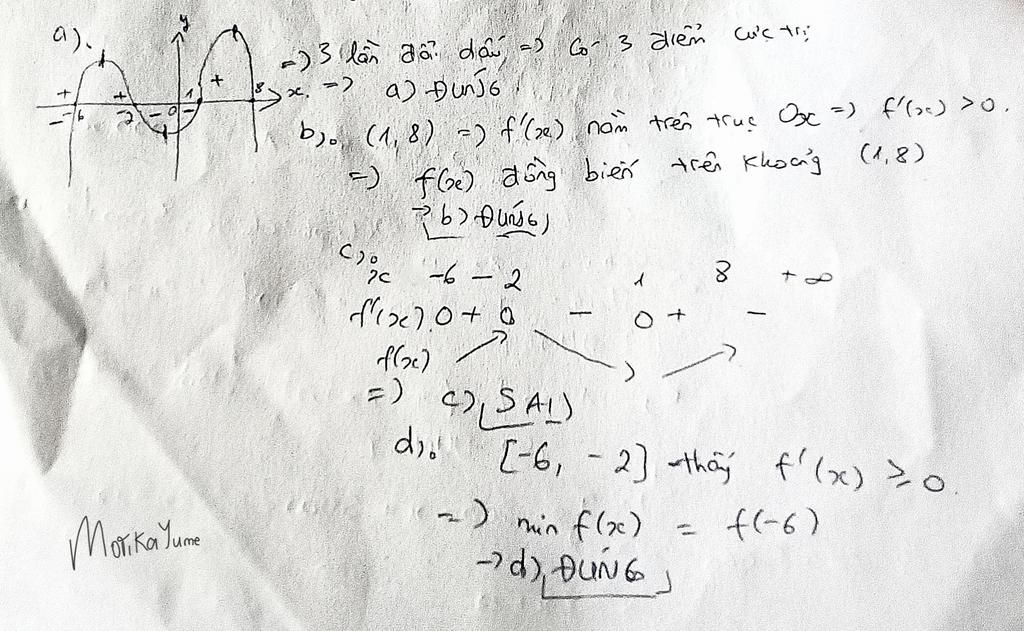 a).
y
+ + - 0 - 1 + 8 x
- -6 -2
=) 3 lần đổi dấu =) Có 3 điểm cực trị
=) a) ĐÚNG
b), (1, 8) =) f'(x) nằm trên trục Ox =) f'(x) > 0.
=) f(x) đồng biến trên khoảng (1, 8)
→ b) ĐÚNG
c),
x -6 - 2 1 8 + ∞
f'(x) 0 + 0 - 0 + -
f(x)
=) c) SAI
d), [-6, - 2] thấy f'(x) ≥ 0.
=) min f(x) = f(-6)
→ d) ĐÚNG
MorikaYume